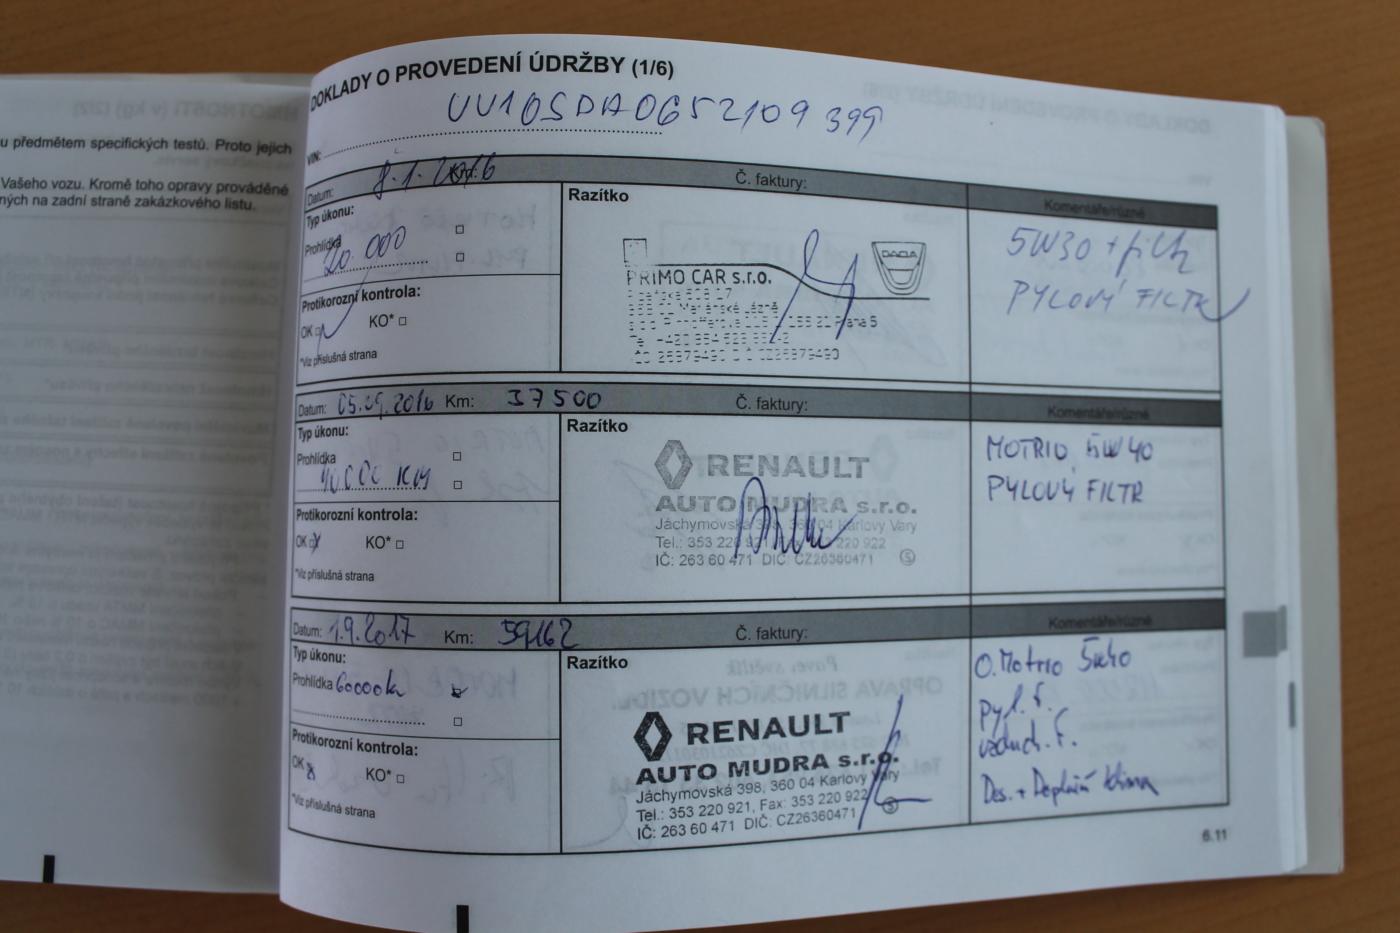 u předmětem specifických testů. Proto jejich
Vašeho vozu. Kromě toho opravy prováděné
ných na zadní straně zakázkového listu.
DOKLADY O PROVEDENÍ ÚDRŽBY (1/6)
VIN: UU10SDA0652109399
Datum: 8.1.2016 Km: Č. faktury: Komentáře/různé
Typ úkonu:
Prohlídka
20.000
Protikorozní kontrola:
OK KO*
*Viz příslušná strana
Razítko
PRIMO CAR s.r.o.
DACIA
5W30 + filtr
PYLOVÝ FILTR
Datum: 05.09.2016 Km: 37500 Č. faktury: Komentáře/různé
Typ úkonu:
Prohlídka
40000 KM
Protikorozní kontrola:
OK KO*
*Viz příslušná strana
Razítko
RENAULT
AUTO MUDRA s.r.o.
Jáchymovská 398, 360 04 Karlovy Vary
Tel.: 353 220 921, Fax: 353 220 922
IČ: 263 60 471 DIČ: CZ26360471
S
MOTRIO 5W40
PYLOVÝ FILTR
Datum: 1.9.2017 Km: 59162 Č. faktury: Komentáře/různé
Typ úkonu:
Prohlídka 60000k
Protikorozní kontrola:
OK KO*
*Viz příslušná strana
Razítko
RENAULT
AUTO MUDRA s.r.o.
Jáchymovská 398, 360 04 Karlovy Vary
Tel.: 353 220 921, Fax: 353 220 922
IČ: 263 60 471 DIČ: CZ26360471
S
O. Motrio 5W40
pyl. f.
vzduch. f.
Des. + Doplnění klima
6.11